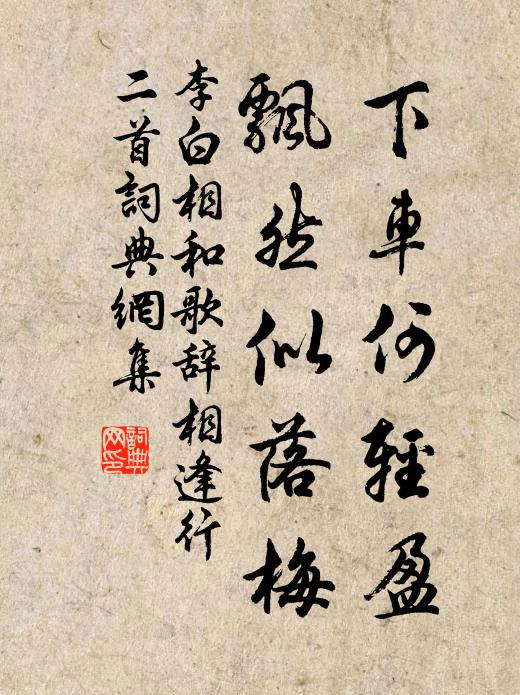 下車何輕盈
飄然似落梅
李白相和歌辞相逢行
二首詞典網集
詞典
网印